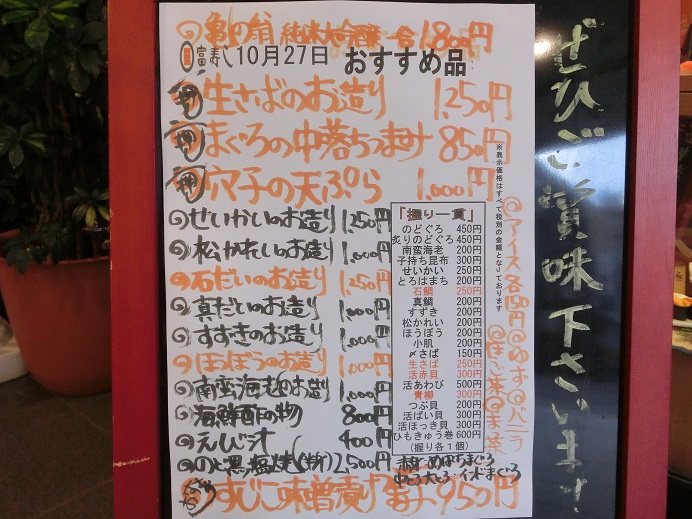 ◎亀の翁 純米大吟醸 一合 1,800円
富寿し 10月27日 おすすめ品
生さばのお造り 1,250円
まぐろの中落ちつまみ 850円
穴子の天ぷら 1,000円
◎せいかいのお造り 1,250円
◎松かれいのお造り 1,000円
◎石だいのお造り 1,250円
◎真だいのお造り 1,000円
◎すずきのお造り 1,000円
◎ほうぼうのお造り 1,000円
◎南蛮海老のお造り 1,000円
◎海鮮酢の物 800円
◎えびみそ 400円
◎のど黒塩焼 2,500円
すじこ味噌漬け 950円
「握り一貫」
のどぐろ 450円
炙りのどぐろ 450円
南蛮海老 200円
子持ち昆布 300円
せいかい 250円
とろはまち 200円
石鯛 250円
真鯛 200円
すずき 200円
松かれい 200円
ほうぼう 200円
小肌 200円
〆さば 150円
生さば 250円
活赤貝 300円
活あわび 500円
青柳 300円
つぶ貝 200円
活ばい貝 300円
活ほっき貝 300円
ひもきゅう巻 600円
(握り各1個)
赤身・めばちまぐろ
中とろ大とろ インドまぐろ
※表示価格はすべて税別の金額となっております
@アイス各150円 @ゆず @バニラ
@ほうじ茶 @抹茶
ぜひご賞味下さいませ